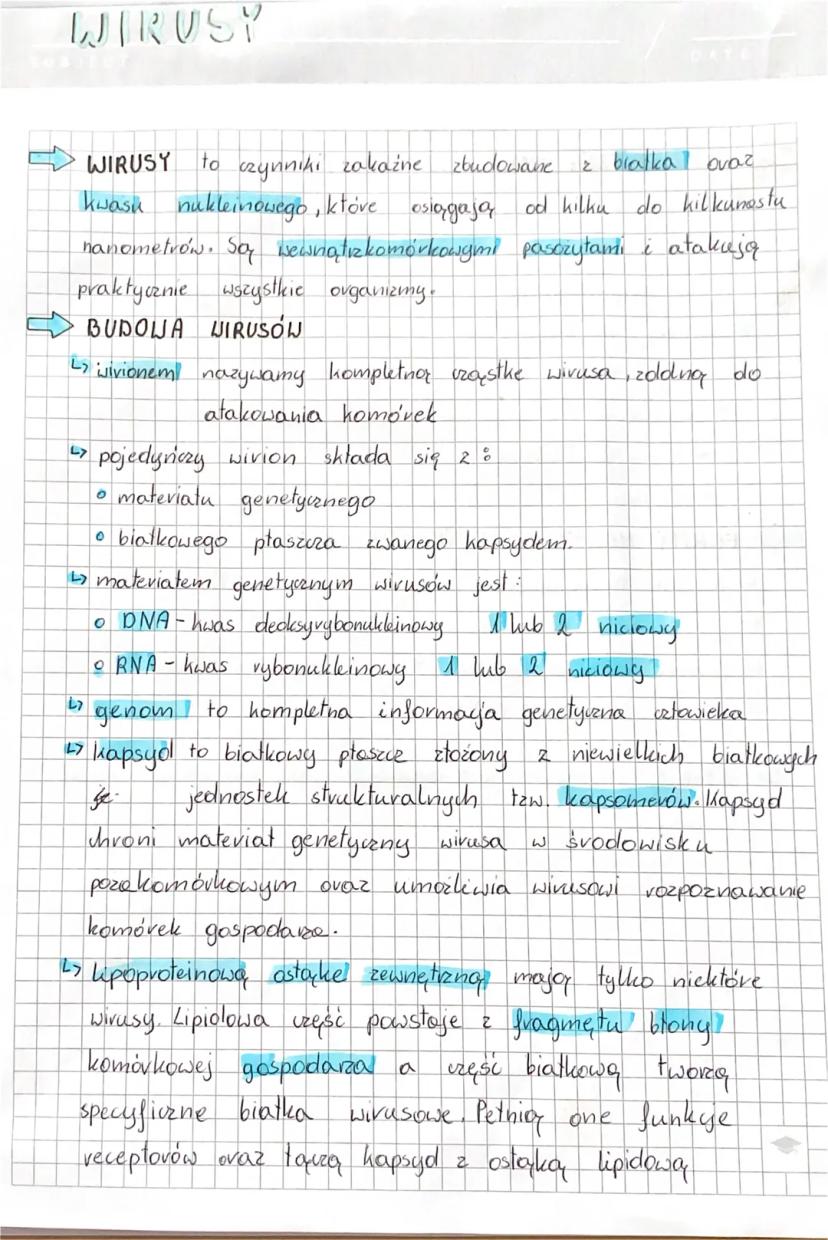 WIRUSY
SUBJECT DATE
WIRUSY to czynniki zakaźne zbudowane z białka oraz
kwasu nukleinowego, które osiągają od kilku do kilkunastu
nanometrów. Są wewnątrzkomórkowymi pasożytami i atakują
praktycznie wszystkie organizmy.
BUDOWA WIRUSÓW
↳ wirionem nazywamy kompletną cząstkę wirusa, zdolną do
atakowania komórek
↳ pojedyńczy wirion składa się z:
o materiału genetycznego
o białkowego płaszcza zwanego kapsydem.
↳ materiałem genetycznym wirusów jest:
o DNA - kwas deoksyrybonukleinowy 1 lub 2 niciowy
o RNA - kwas rybonukleinowy 1 lub 2 niciowy
↳ genom to kompletna informacja genetyczna człowieka
↳ kapsyd to białkowy płaszcz złożony z niewielkich białkowych
jednostek strukturalnych tzw. kapsomerów. Kapsyd
chroni materiał genetyczny wirusa w środowisku
pozakomórkowym oraz umożliwia wirusowi rozpoznawanie
komórek gospodarza.
↳ Lipoproteinową osłonkę zewnętrzną mają tylko niektóre
wirusy. Lipidowa część powstaje z fragmętu błony
komórkowej gospodarza a część białkową tworzą
specyficzne białka wirusowe. Pełnią one funkcje
receptorów oraz łączą kapsyd z osłąką lipidową